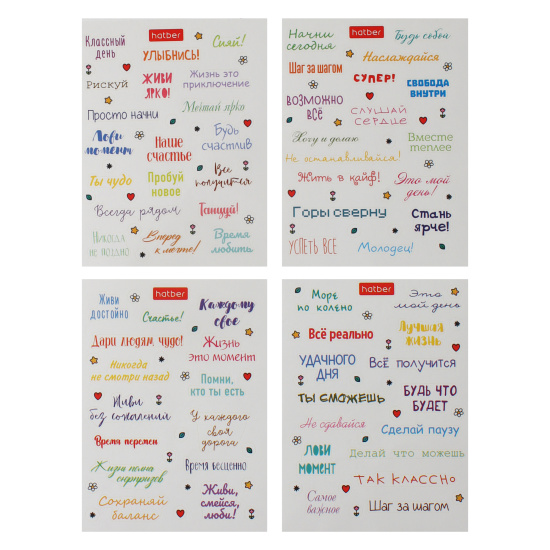 hatber
Классный
день
УЛЫБНИСЬ!
Сияй!
Рискуй
ЖИВИ
ЯРКО!
Жизнь это
приключение
Просто начни
Мечтай ярко
Лови
момент
Наше
счастье
Будь
счастлив
Ты чудо
Пробуй
новое
Все
получится
Всегда рядом
Танцуй!
Никогда
не поздно
Вперед
к мечте!
Время
любить
Начни
сегодня
hatber
Будь собой
Шаг за шагом
Наслаждайся
СУПЕР!
СВОБОДА
ВНУТРИ
ВОЗМОЖНО
ВСЁ
СЛУШАЙ
СЕРДЦЕ
Хочу и делаю
Вместе
теплее
Не останавливайся!
Жить в кайф!
Это мой
день!
Горы сверну
Стань
ярче!
УСПЕТЬ ВСЕ
Молодец!
Живи
достойно
hatber
Счастье!
Каждому
свое
Дари людям, чудо!
Жизнь
это момент
Никогда
не смотри назад
Помни,
кто ты есть
Живи
без сожалений
У каждого
своя
дорога
Время перемен
Жизнь полна
сюрпризов
Время бесценно
Сохраняй
баланс
Живи,
смейся,
люби!
hatber
Море
по колено
Это
мой день
Всё реально
Лучшая
жизнь
УДАЧНОГО
ДНЯ
Всё получится
ТЫ СМОЖЕШЬ
БУДЬ ЧТО
БУДЕТ
Не сдавайся
Сделай паузу
ЛОВИ
МОМЕНТ
Делай что можешь
ТАК КЛАССНО
Самое
важное
Шаг за шагом